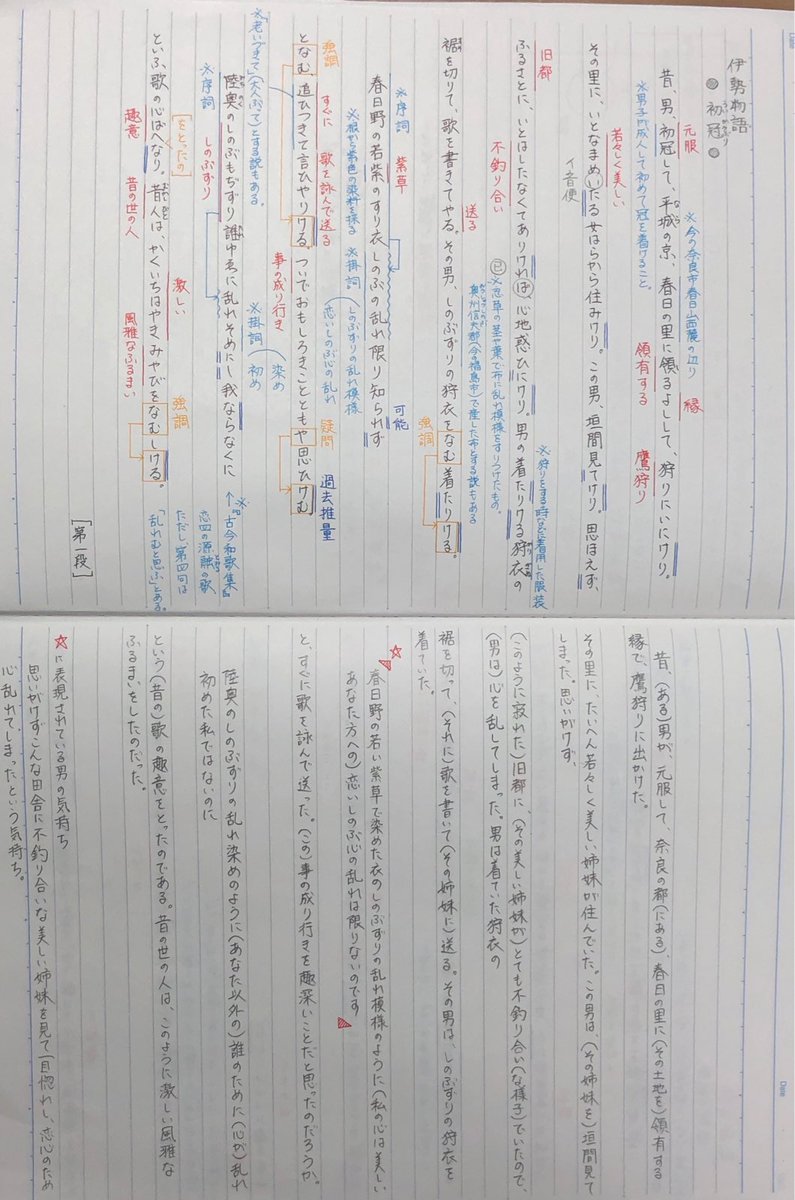 伊勢物語
●初冠●
うひかうぶり
元服
※今の奈良市春日山西麓の辺り
縁
昔、男、初冠して、平城の京、春日の里に領るよしして、狩りにいにけり。
なら
※男子が成人して初めて冠を着けること。
領有する
鷹狩り
若々しく美しい
その里に、いとなまめいたる女はらから住みけり。この男、垣間見てけり。思ほえず、
イ音便
旧都
※狩りをする時などに着用した服装
ふるさとに、いとはしたなくてありければ、心地惑ひにけり。男の着たりける狩衣の
不釣り合い
已
※忍草の茎や葉で布に乱れ模様をすりつけたもの。
奥州信夫郡(今の福島市)で産した布とする説もある
送る
強調
裾を切りて、歌を書きてやる。その男、しのぶずりの狩衣をなむ着たりける。
※序詞
紫草
春日野の若紫のすり衣しのぶの乱れ限り知られず
可能
※根から紫色の染料を採る
※掛詞
しのぶずりの乱れ模様
恋いしのぶ心の乱れ
強調
すぐに
歌を詠んで送る
疑問
過去推量
となむ追ひつきて言ひやりける。ついでおもしろきことともや思ひけむ。
事の成り行き
※「老いづきて」(大人ぶって)とする説もある。
※掛詞
染め
初め
陸奥のしのぶもぢずり誰ゆゑに乱れそめにし我ならなくに
※序詞
しのぶずり
↑※『古今和歌集』
恋四の源融の歌
ただし、第四句は
「乱れむと思ふ」とある。
「をとったの」
激しい
強調
といふ歌の心ばへなり。昔人は、かくいちはやきみやびをなむしける。
趣意
昔の世の人
風雅なふるまい
[第一段]
昔、(ある)男が、元服して、奈良の都(にある)、春日の里に(その土地を)領有する
縁で、鷹狩りに出かけた。
その里に、たいへん若々しく美しい姉妹が住んでいた。この男は、(その姉妹を)垣間見て
しまった。思いがけず、
(このように寂れた)旧都に、(その美しい姉妹が)とても不釣り合い(な様子)でいたので、
(男は)心を乱してしまった。男は着ていた狩衣の
裾を切って、(それに)歌を書いて(その姉妹に)送る。その男は、しのぶずりの狩衣を
着ていた。
☆春日野の若い紫草で染めた衣のしのぶずりの乱れ模様のように(私の心は美しい
あなた方への)恋いしのぶ心の乱れは限りないのです
と、すぐに歌を詠んで送った。(この)事の成り行きを趣深いことだと思ったのだろうか。
陸奥のしのぶずりの乱れ染めのように(あなた以外の)誰のために(心が)乱れ
初めた私ではないのに
という(昔の)歌の趣意をとったのである。昔の世の人は、このように激しい風雅な
ふるまいをしたのだった。
☆に表現されている男の気持ち
思いがけずこんな田舎に不釣り合いな美しい姉妹を見て一目惚れし、恋心のため
心乱れてしまったという気持ち。